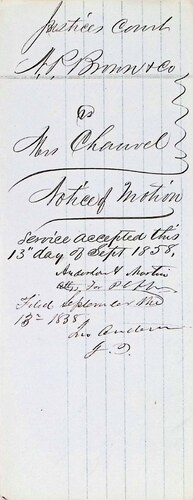 Justices Court
A. P. Brown & Co
vs
Mrs Chauvel
Notice of Motion
Service accepted this
13th day of Sept 1858,
Anderson & Martin
Attys for Plffs
Filed September the
13th 1858
Jno Anderson
J. P.